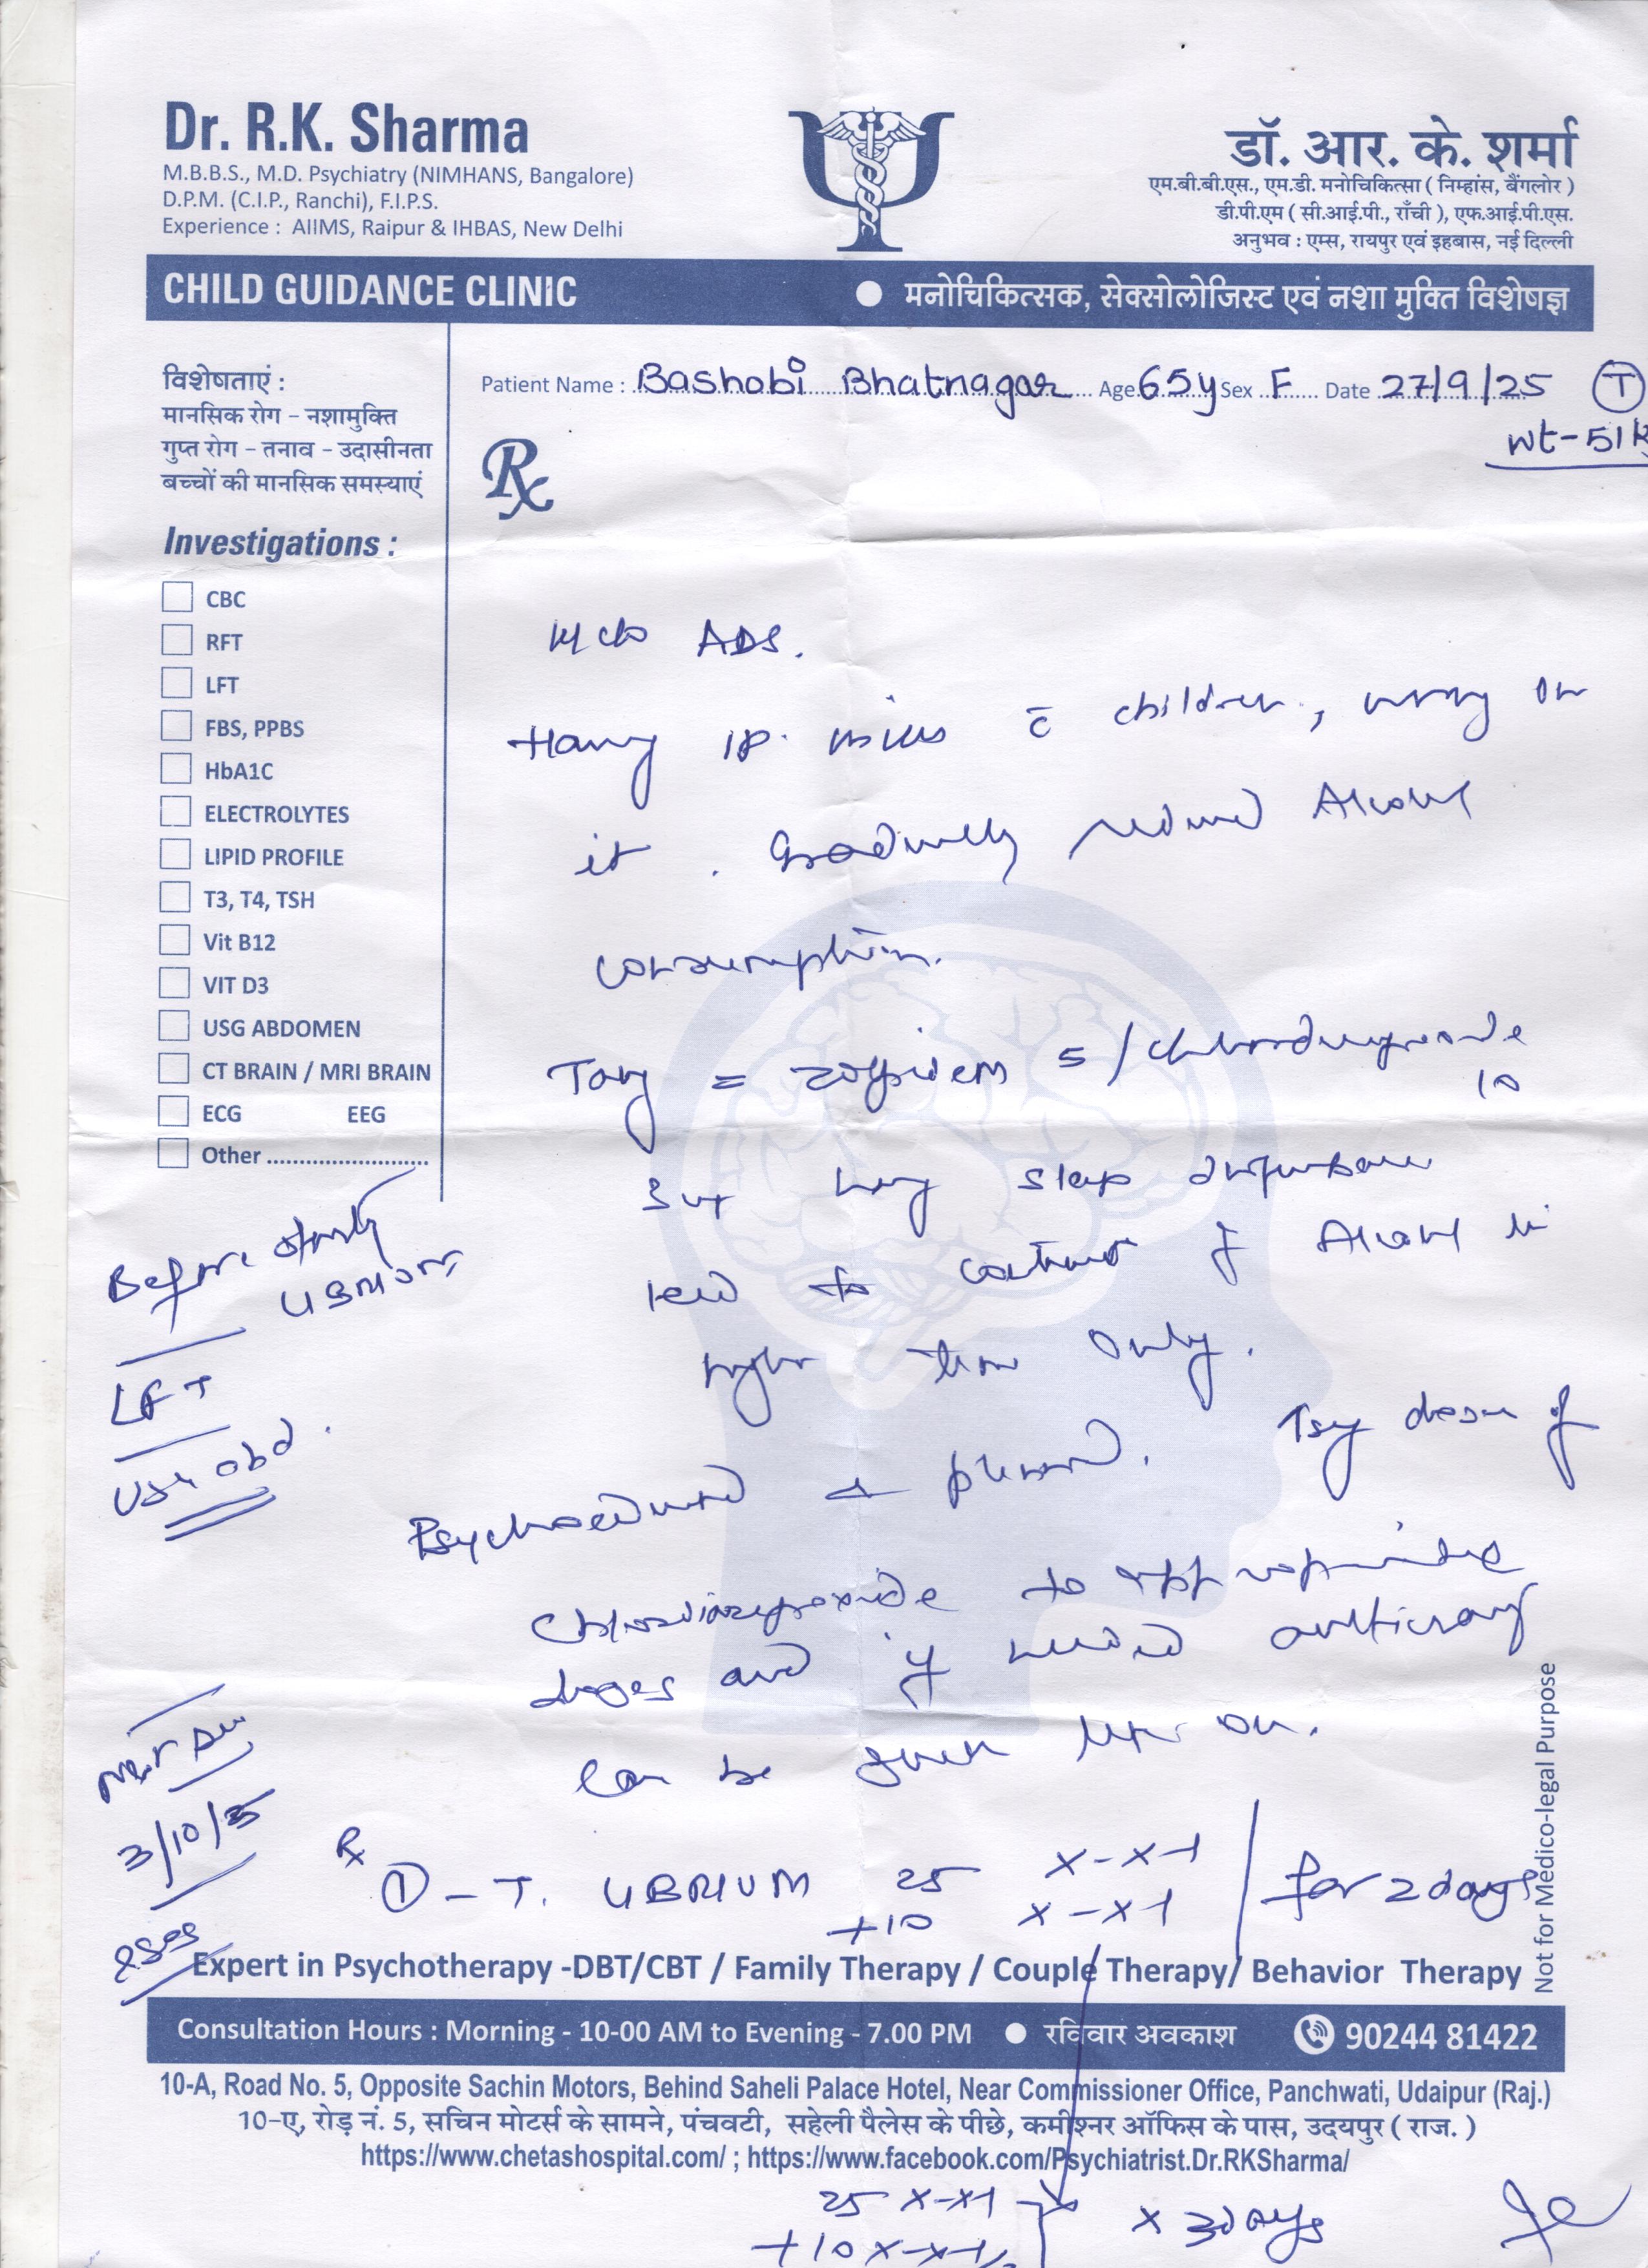 Dr. R.K. Sharma
M.B.B.S., M.D. Psychiatry (NIMHANS, Bangalore)
D.P.M. (C.I.P., Ranchi), F.I.P.S.
Experience : AIIMS, Raipur & IHBAS, New Delhi
डॉ. आर. के. शर्मा
एम.बी.बी.एस., एम.डी. मनोचिकित्सा ( निम्हांस, बैंगलोर )
डी.पी.एम ( सी.आई.पी., राँची ), एफ.आई.पी.एस.
अनुभव : एम्स, रायपुर एवं इहबास, नई दिल्ली
CHILD GUIDANCE CLINIC
● मनोचिकित्सक, सेक्सोलोजिस्ट एवं नशा मुक्ति विशेषज्ञ
विशेषताएं :
मानसिक रोग – नशामुक्ति
गुप्त रोग – तनाव – उदासीनता
बच्चों की मानसिक समस्याएं
Investigations :
CBC
RFT
LFT
FBS, PPBS
HbA1C
ELECTROLYTES
LIPID PROFILE
T3, T4, TSH
Vit B12
VIT D3
USG ABDOMEN
CT BRAIN / MRI BRAIN
ECG EEG
Other ..........................
Patient Name : Bashobi Bhatnagar Age 65y Sex F Date 27/9/25 T
Wt-51k
Rx
ADS.
Having IP issues c̄ children,
it. Gradually reduced Alcohol
consumption.
= zolpidem 5 / chlordiazepoxide
10
but having sleep disturbance
need to continue of Alcohol in
night time only.
Psychoeducated
Chlordiazepoxide to appropriate
doses and if needed anticraving
can be given later on.
Before
LIBRIUM
LFT
USG abd.
3/10/25
Rx
① - T. LIBRIUM 25 x-x-1
+10 x-x-1
for 2 days
Not for Medico-legal Purpose
Expert in Psychotherapy -DBT/CBT / Family Therapy / Couple Therapy/ Behavior Therapy
Consultation Hours : Morning - 10-00 AM to Evening - 7.00 PM ● रविवार अवकाश 90244 81422
10-A, Road No. 5, Opposite Sachin Motors, Behind Saheli Palace Hotel, Near Commissioner Office, Panchwati, Udaipur (Raj.)
10-ए, रोड़ नं. 5, सचिन मोटर्स के सामने, पंचवटी, सहेली पैलेस के पीछे, कमीश्नर ऑफिस के पास, उदयपुर ( राज. )
https://www.chetashospital.com/ ; https://www.facebook.com/Psychiatrist.Dr.RKSharma/
25 x-x-1
x 3 days
+10 x-x-1/2